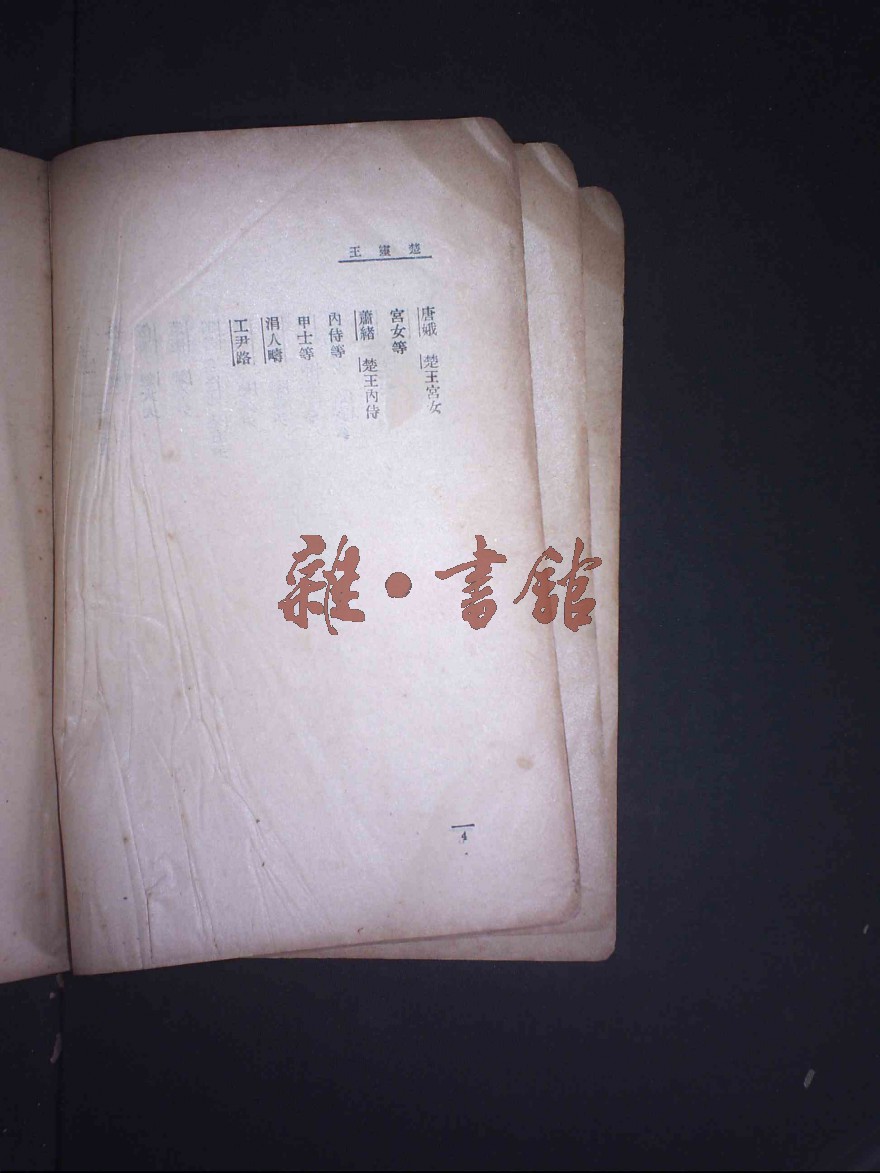 楚靈王
唐娥 楚王宮女
宮女等
蕭緒 楚王內侍
內侍等
甲士等
涓人疇
工尹路
雜·書館
4